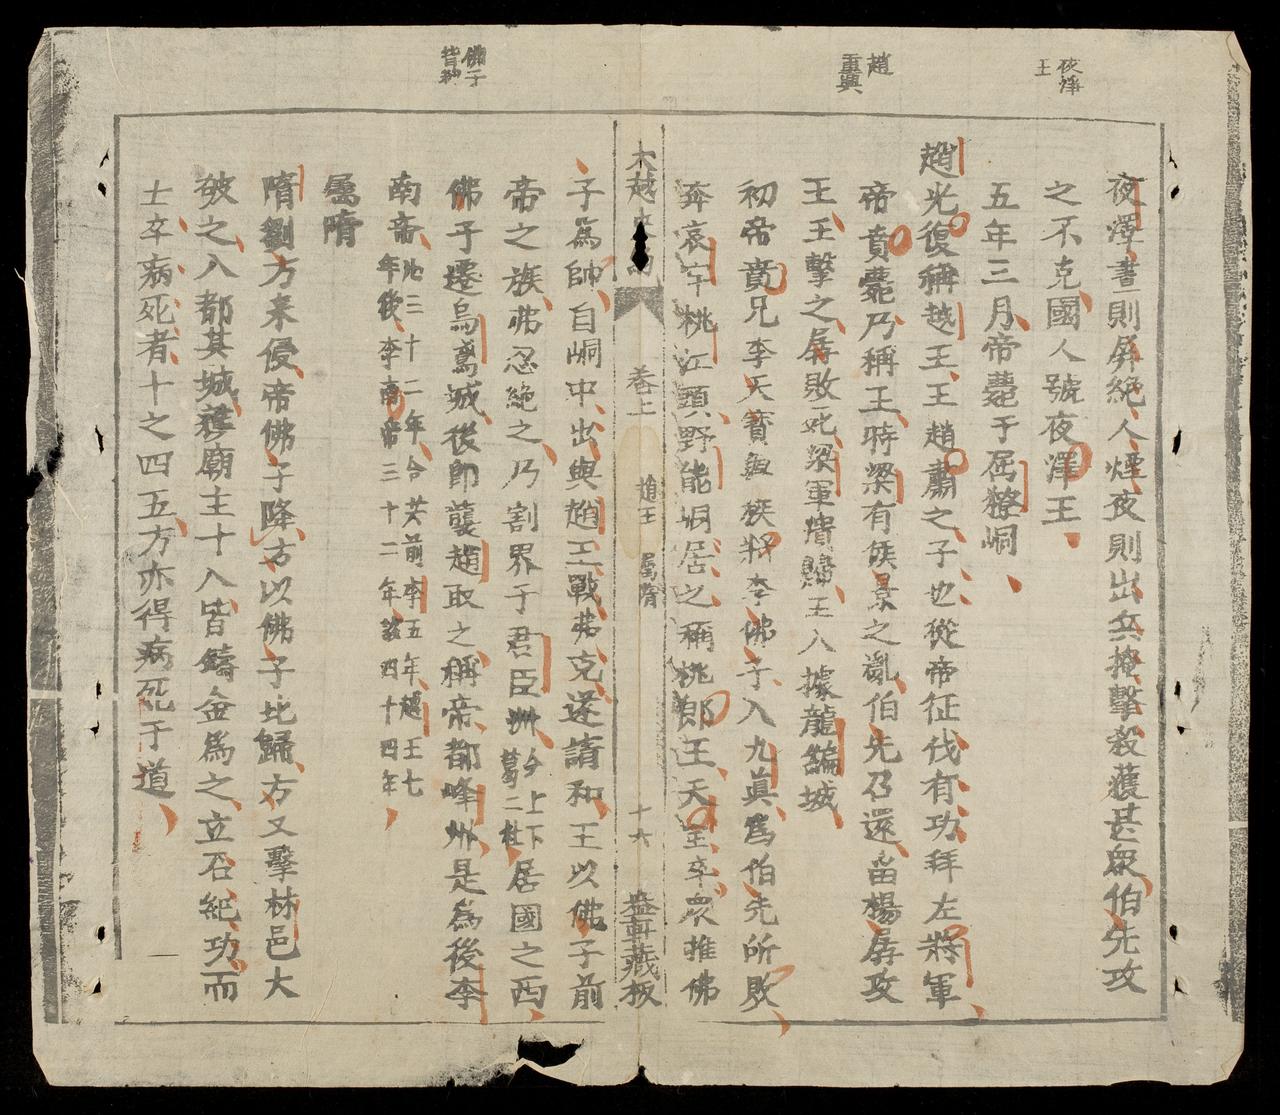 夜澤王
趙
重興
夜澤晝則屏絶人煙夜則出兵掩擊殺獲甚衆伯先攻
之不克國人號夜澤王
五年三月帝薨于屈獠峒
趙光復稱越王王趙肅之子也從帝征伐有功拜左將軍
帝賁薨乃稱王時梁有侯景之亂伯先召還畱楊孱攻
王王擊之孱敗死梁軍潰歸王入據龍編城
初帝賁兄李天寶與族將李佛子入九眞爲伯先所敗
奔哀牢桃江頭野能峒居之稱桃郎王天宝卒衆推佛
大越史
卷上
趙王
屬隋
十六
盎軒藏板
佛子
子爲帥自峒中出與趙王戰弗克遂請和王以佛子前
帝之族弗忍絶之乃割界于君臣洲今上下葛二社居國之西
佛子遷烏鳶城後卽襲趙取之稱帝都峰州是為後李
南帝治三十二年合共前李五年趙王七
年後李南帝三十二年該四十四年
屬隋
隋劉方来侵帝佛子降方以佛子北歸方又擊林邑大
破之入都其城獲廟主十八皆鑄金爲之立石紀功而
士卒病死者十之四五方亦得病死于道